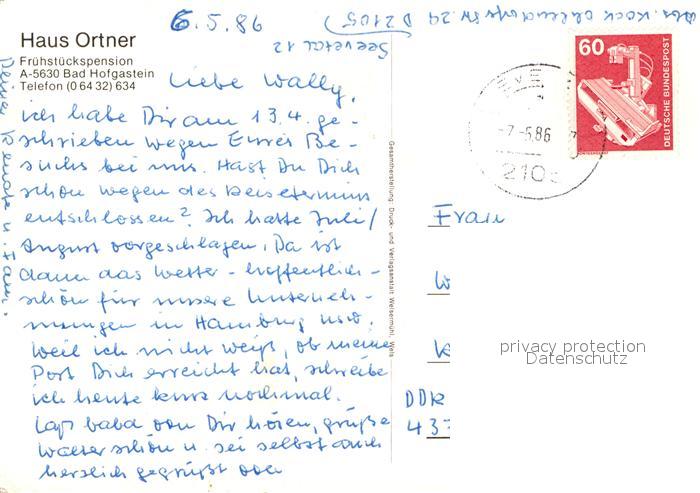 6.5.86
Abs. Kock Ohlendorfer Str. 29 D 2105
Seevetal 12
Haus Ortner
Frühstückspension
A-5630 Bad Hofgastein
Telefon (0 64 32) 634
Liebe Wally,
ich habe Dir am 13.4. ge-
schrieben wegen Eures Be-
suchs bei uns. Hast Du Dich
schon wegen des Reisetermins
entschlossen? Ich hatte Juli/
August vorgeschlagen. Da ist
dann das Wetter - hoffentlich -
schön für unsere Unterneh-
mungen in Hamburg usw.
Weil ich nicht weiß, ob meine
Post Dich erreicht hat, schreibe
ich heute kurz nochmal.
Laß bald von Dir hören, grüße
Walter schön u. sei selbst auch
herzlich gegrüßt von
Deiner Renate u. Fam.
Gesamtherstellung: Druck- und Verlagsanstalt Welsermühl, Wels
60
DEUTSCHE BUNDESPOST
-7.-5.86
210
Frau
W
K
DDR
437
privacy protection
Datenschutz